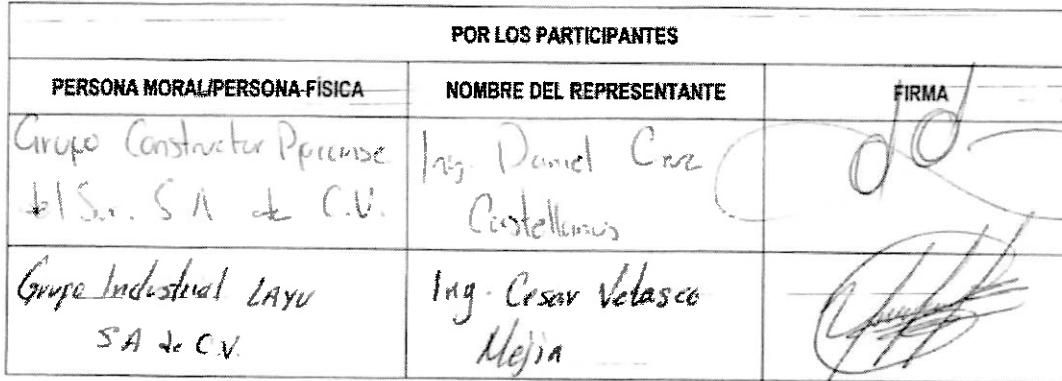 POR LOS PARTICIPANTES
PERSONA MORAL/PERSONA FÍSICA
NOMBRE DEL REPRESENTANTE
FIRMA
Grupo Constructor
del Sur. S A de C.V.
Ing. Daniel Cruz
Castellanos
Grupo Industrial LAYU
SA de C.V.
Ing. Cesar Velasco
Mejia